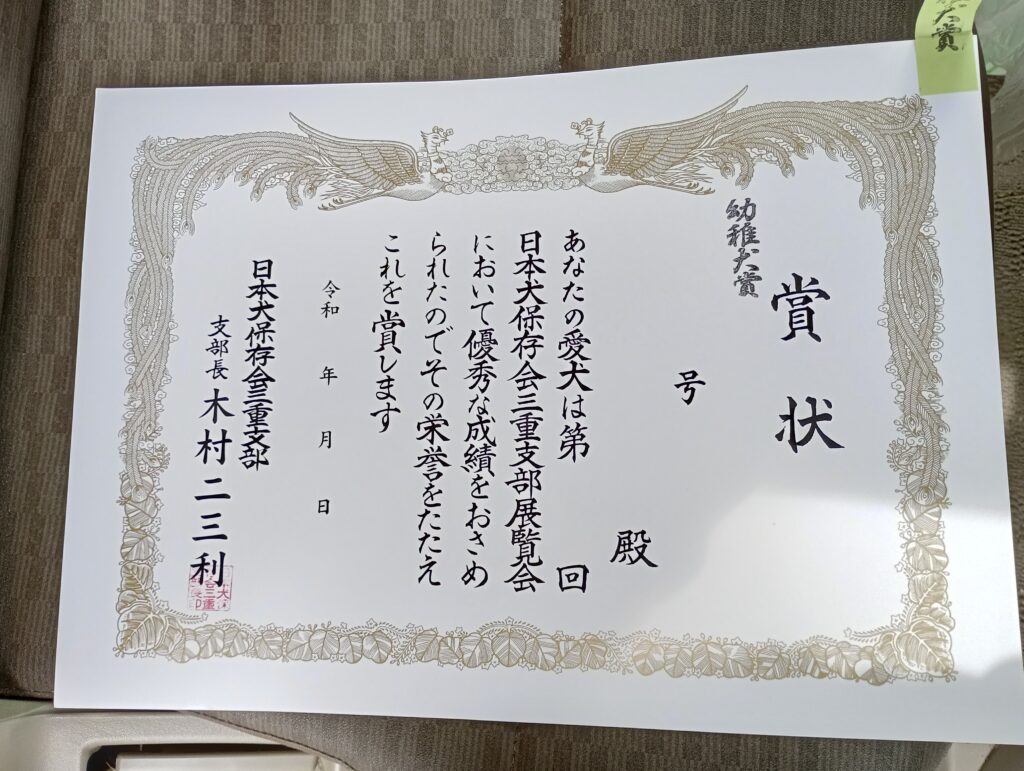 犬賞
賞状
幼稚犬賞
号
殿
あなたの愛犬は第 回
日本犬保存会三重支部展覧会
において優秀な成績をおさめ
られたのでその栄誉をたたえ
これを賞します
令和 年 月 日
日本犬保存会三重支部
支部長 木村二三利